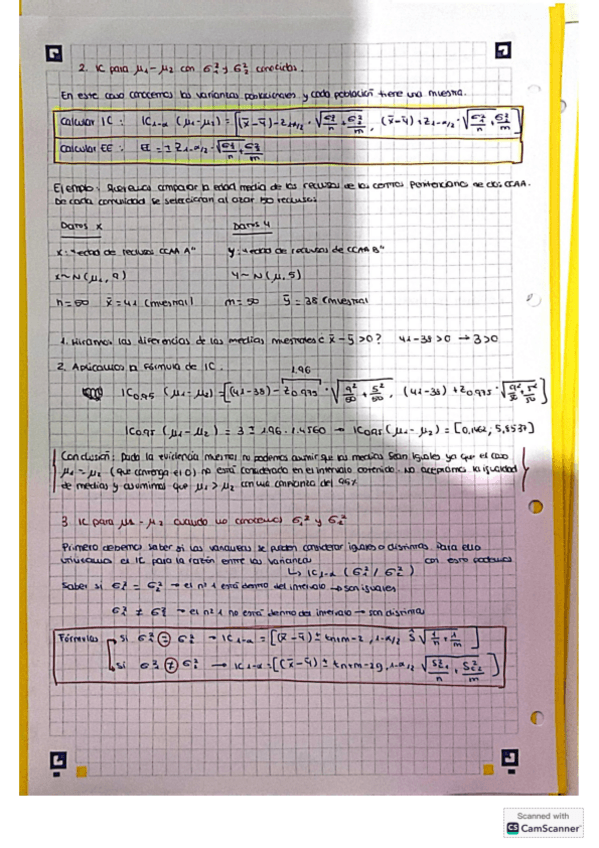 2. IC para μ1-μ2 con σ1² y σ2² conocidas.
En este caso conocemos las varianzas poblacionales y cada población tiene una muestra.
Calcular IC: IC1-α (μ1-μ2) = [(x̄-ȳ)-Z1-α/2 · √(σ1²/n + σ2²/m), (x̄-ȳ)+Z1-α/2 · √(σ1²/n + σ2²/m)]
Calcular EE: EE = ± Z1-α/2 · √(σ1²/n + σ2²/m)
Ejemplo: Queremos comparar la edad media de los reclusos de los centros penitenciarios de dos CCAA.
De cada comunidad se seleccionan al azar 50 reclusos.
Datos x Datos y
x: "edad de reclusos CCAA A" y: "edad de reclusos de CCAA B"
x~N(μ1, 9) y~N(μ, 5)
n=50 x̄=41 (muestral) m=50 ȳ=38 (muestral
1. Miramos las diferencias de las medias muestrales ¿ x̄-ȳ>0? 41-38>0 → 3>0
2. Aplicamos la fórmula de IC. 1.96
IC0,95 (μ1-μ2) = [(41-38)-Z0,975 · √(9²/50 + 5²/50), (41-38)+Z0,975 · √(9²/50 + 5²/50)]
IC0,95 (μ1-μ2) = 3 ± 1.96 · 1.4560 → IC0,95 (μ1-μ2) = [0,1462; 5,8537]
Conclusión: Dada la evidencia muestral no podemos asumir que las medias sean iguales ya que el caso
μ1=μ2 (que contenga el 0) no está considerado en el intervalo obtenido. No aceptamos la igualdad
de medias y asumimos que μ1>μ2 con una confianza del 95%
3 IC para μ1-μ2 cuando no conocemos σ1² y σ2²
Primero debemos saber si las varianzas se pueden considerar iguales o distintas. Para ello
utilizamos el IC para la razón entre las varianzas con esto podemos
↳ IC1-α (σ1²/σ2²)
Saber si σ1² = σ2² → el nº 1 está dentro del intervalo → son iguales
σ1² ≠ σ2² → el nº 1 no está dentro del intervalo → son distintas
Fórmulas si σ1² = σ2² → IC1-α = [(x̄-ȳ) ± tn+m-2, 1-α/2 Ŝ √(1/n + 1/m)]
si σ1² ≠ σ2² → IC1-α = [(x̄-ȳ) ± tn+m-2g, 1-α/2 √(Sc1²/n + Sc2²/m)]
Scanned with
CS CamScanner